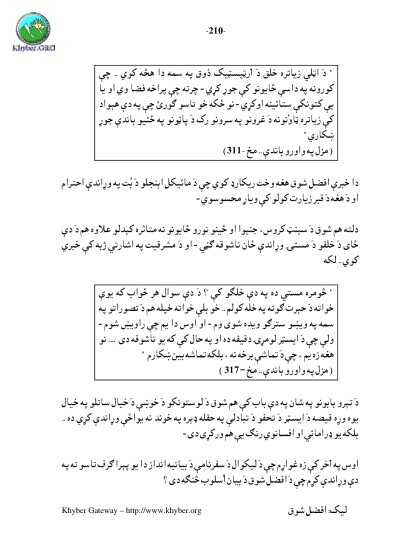 -210-
Khyber.ORG
" دَ اټلي زياتره خلق دَ آرټيسټيک ذوق په سمه دا هڅه کوي ۔ چې
کورونه په داسې ځايونو کې جوړ کړي - چرته چې پراخه فضا وي او يا
يې کتونکې ستائينه اوکړي - نو ځکه خو تاسو ګورئ چې په دې هېواد
کې زياتره ټاوُنونه دَ غرونو په سرونو رک دَ پاڼونو په څنډو باندې جوړ
ښکاري "
( مزل په واورو باندې۔ مخ -311)
دا خبرې افضل شوق هغه وخت ريکارډ کوي چې دَ مائيکل اېنجلو دَ بُت په وړاندې احترام
او دَ هغه دَ قبر زيارت کولو کې وياړ محسوسوي -
دلته هم شوق دَ سېنټ کروس، جنېوا او ځينو نورو ځايونو نه متاثره کېدلو علاوه هم دَ دې
ځای دَ خلقو دَ مستۍ وړاندې ځان ناشوقه ګڼي - او دَ مشرقيت په اشارتي ژبه کې خبرې
کوي۔ لکه
" څومره مستي ده په دې خلګو کې ؟ دَ دې سوال هر ځواب که يوې
خواته دَ حيرت ګوته په خله کولم۔ خو بلې خواته خپله هم دَ تصوراتو په
سمه په ويښو سترګو ويده شوی وم - او اوس دا يم چې راويښ شوم -
ولې چې دَ ايسټر لومړۍ دقيقه ده او په حال کې که يو ناشوقه دی ... نو
هغه زه يم ، چې دَ تماشې برخه نه ، بلکه تماشه بين ښکارم "
( مزل په واورو باندې۔ مخ – 317 )
دَ تېرو بابونو په شان په دې باب کې هم شوق دَ لوستونکو دَ خوښې دَ خيال ساتلو په خيال
يوه وړه قيصه دَ ايسټر دَ تحفو دَ تبادلې په حقله ډېره په خوند نه يواځې وړاندې کړي ده ۔
بلکه يو ډرامائي او افسانوي رنګ يې هم ورکړی دی -
اوس په آخر کې زه غواړم چې دَ ليکوال دَ سفرنامې دَ بيانيه انداز دا يو پېرا ګرف تاسو ته په
دې وړاندې کړم چې دَ افضل شوق دَ بيان اُسلوب څنګه دی ؟
ليک: افضل شوق
Khyber Gateway – http://www.khyber.org